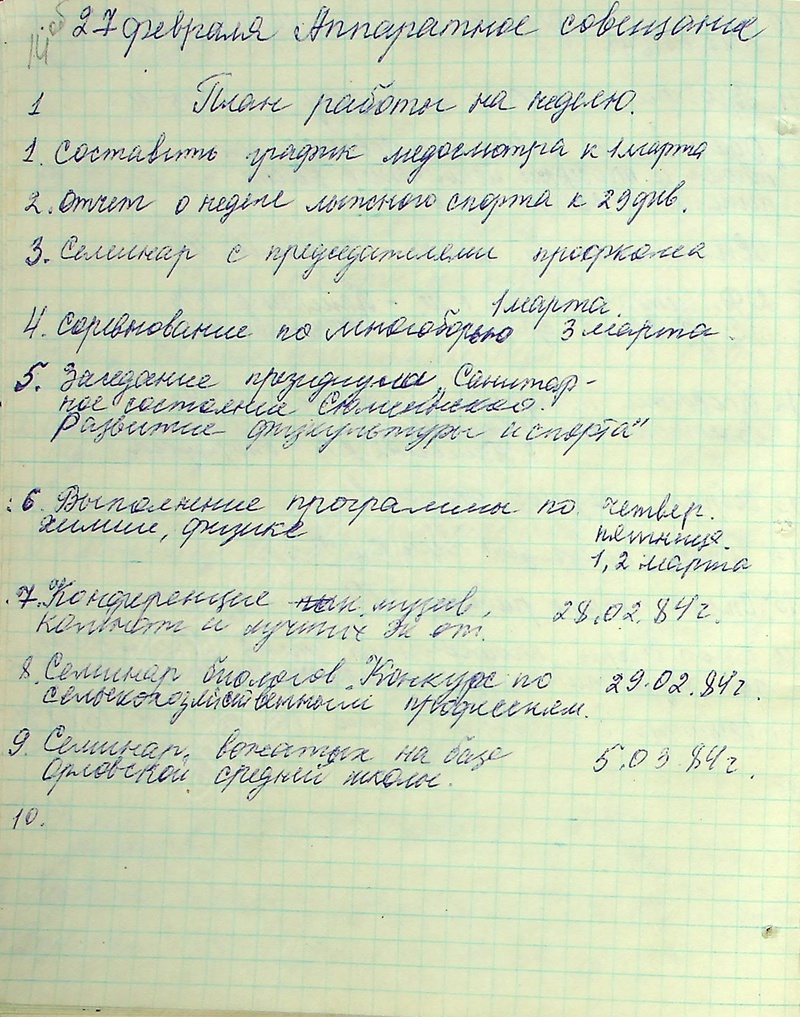 27 февраля Аппаратное совещание
1 План работы на неделю.
1. Составить график медосмотра к 1 марта
2. Отчет о неделе лыжного спорта к 29 фев.
3. Семинар с председателями профкома
1 марта.
4. Соревнование по многоборью 3 марта.
5. Заседание президиума „Санитар-
ное состояние
Развитие физкультуры и спорта"
6. Выполнение программы по четвер.
химии, физике пятница
1, 2 марта
7. Конференцие музеев, 28.02.84 г.
комнат и лучших эк от.
8. Семинар биологов „Конкурс по 29.02.84 г.
сельскохозяйственным профессиям.
9. Семинар вожатых на базе 5.03.84 г.
Орловской средней школы.
10.